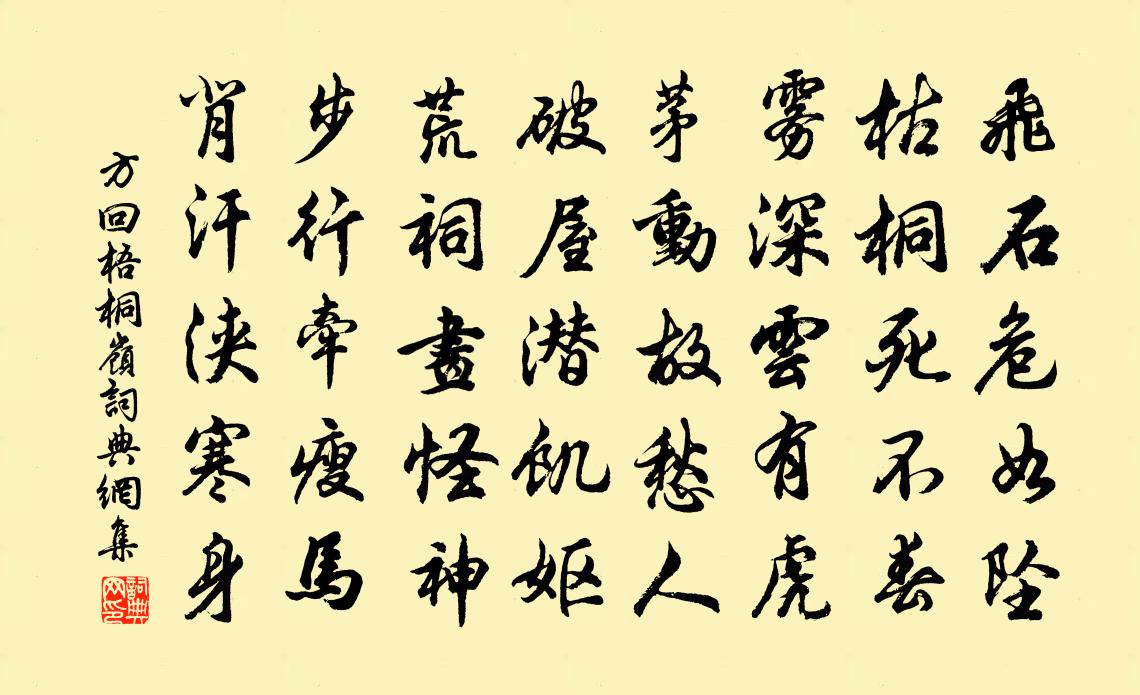 飛石危如墜
枯桐死不春
霧深雲有虎
茅動故愁人
破屋潛飢嫗
荒祠畫怪神
步行牽瘦馬
背汗浹寒身
方回梧桐嶺詞典網集
詞典網印